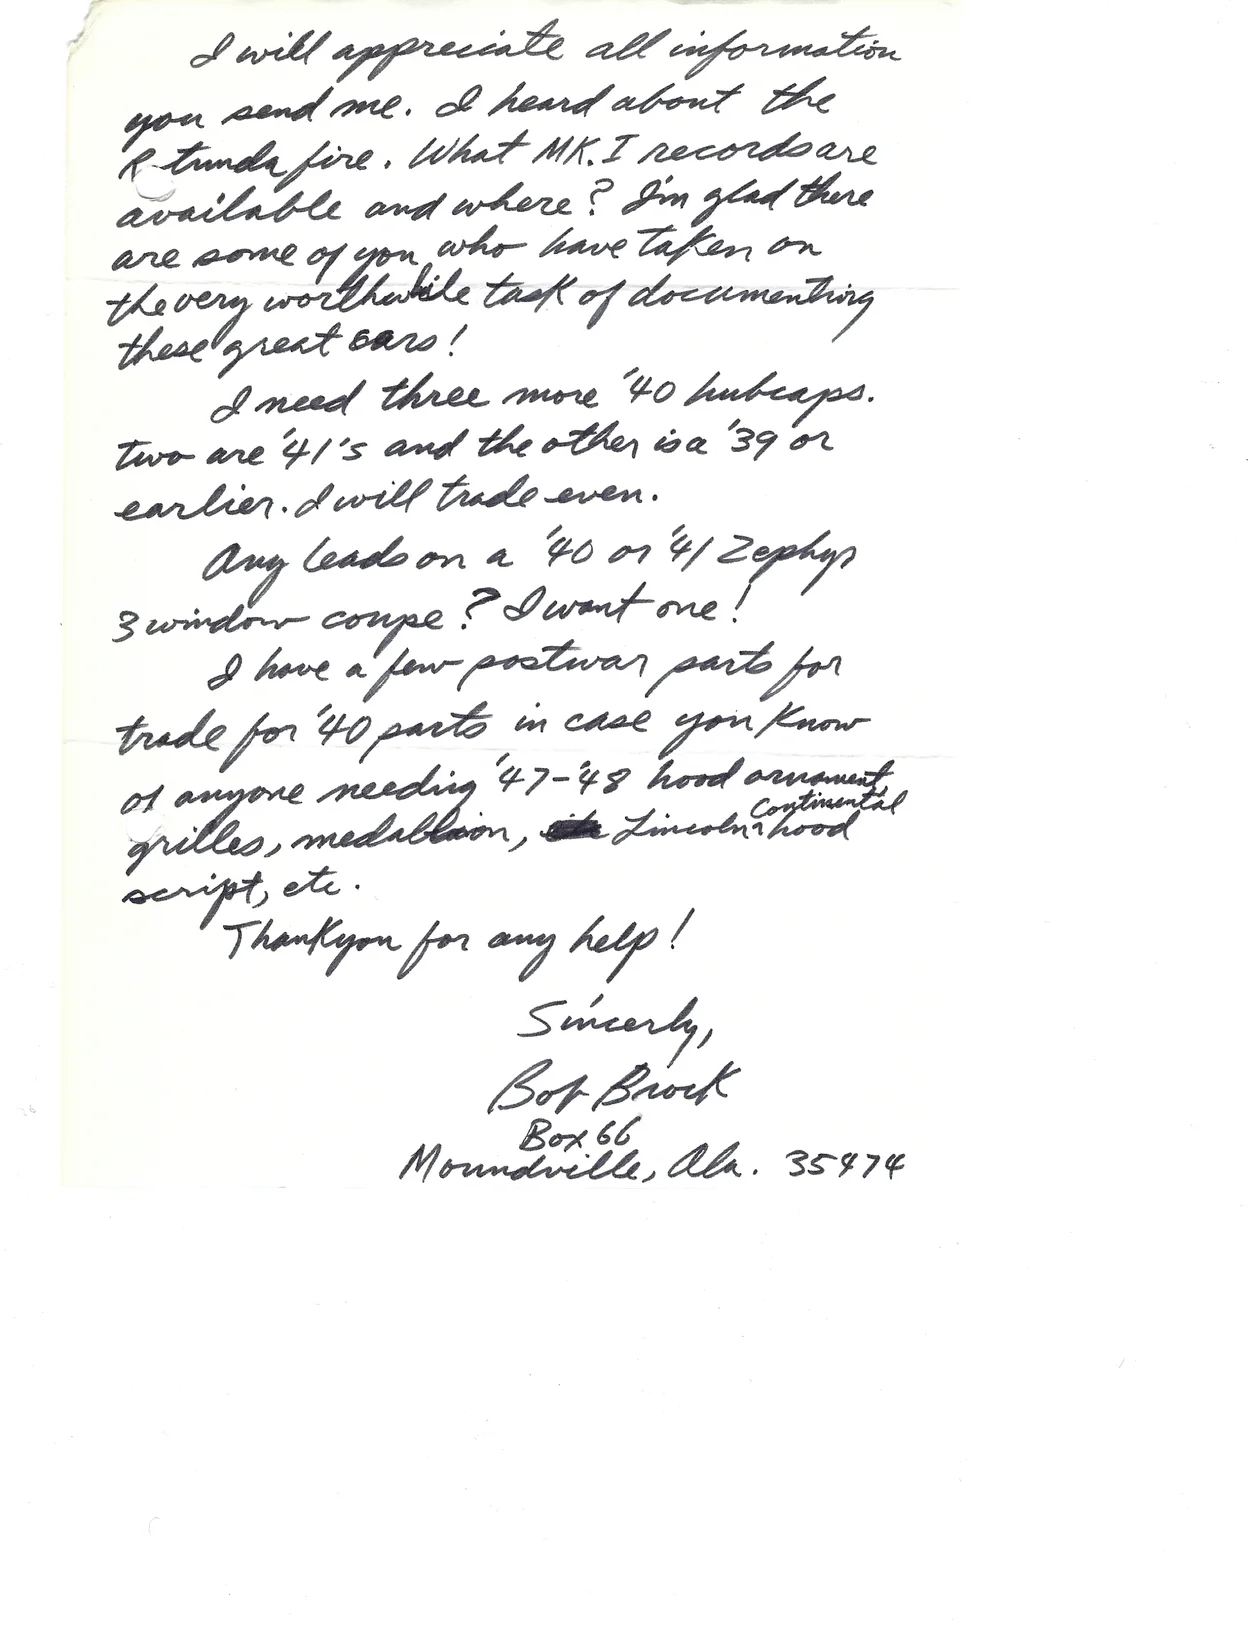 I will appreciate all information
you send me. I heard about the
R tunda fire. What MK. I records are
available and where? I'm glad there
are some of you who have taken on
the very worthwhile task of documenting
these great cars!
I need three more '40 hubcaps.
two are '41's and the other is a '39 or
earlier. I will trade even.
Any leads on a '40 or '41 Zephyr
3 window coupe? I want one!
I have a few postwar parts for
trade for '40 parts in case you know
of anyone needing '47-'48 hood ornament,
grilles, medallion, Lincoln Continental hood
script, etc.
Thank you for any help!
Sincerly,
Bob Brock
Box 66
Moundville, Ala. 35474